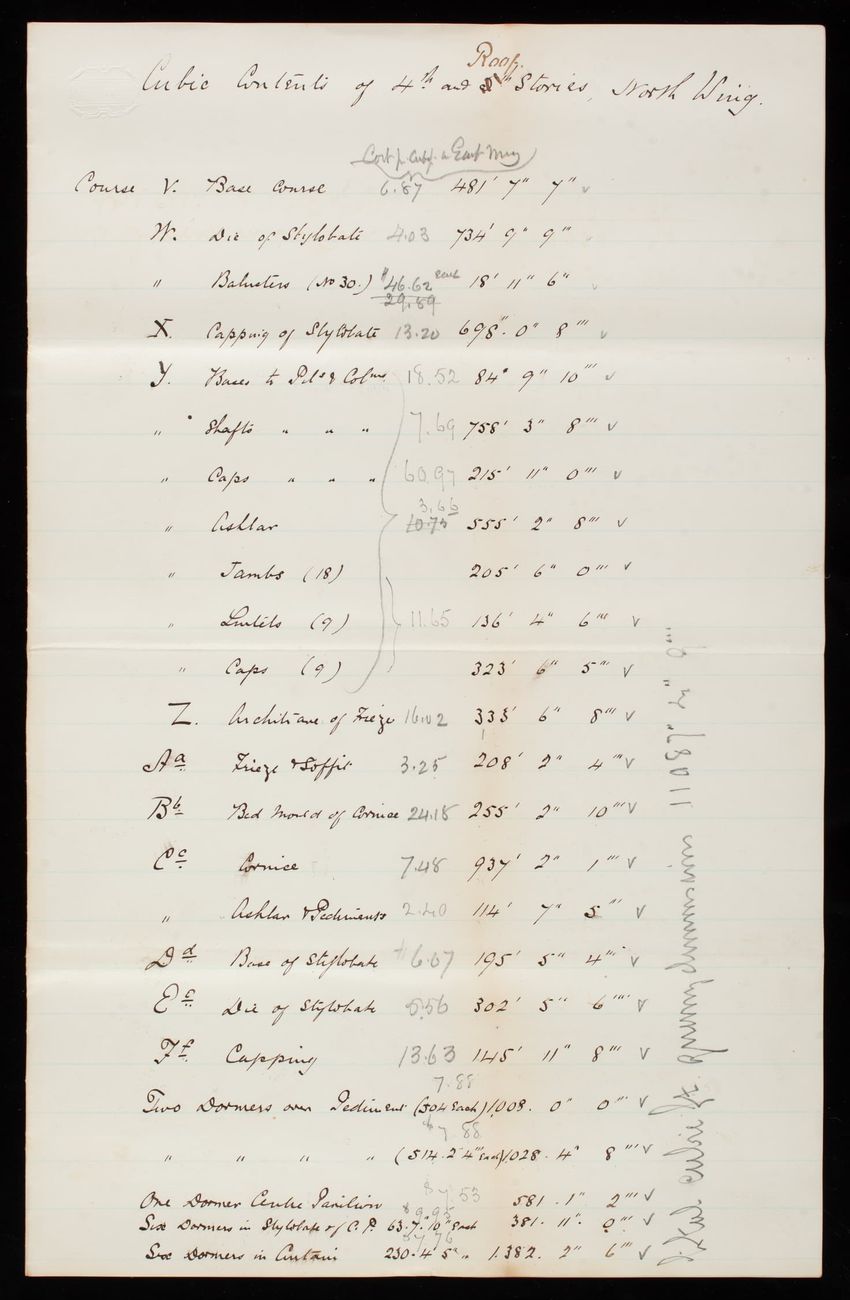 Roof.
Cubic Contents of 4th and Stories, North Wing.
Cost p. cub. f. in East Wing
Course V. Base Course 6.87 481' 7" 7"
W. Die of Stylobate 4.03 734' 9" 9"
" Balusters (No 30.) $46.62 each 18' 11" 6"
29.89
X. Capping of Stylobate 13.20 698". 0" 8'''
Y. Bases to Pils & Colmns 18.52 84" 9" 10'''
" Shafts " " " 7.69 758' 3" 8'''
" Caps " " " 60.97 215' 11" 0'''
3.66
" Ashlar 10.75 555' 2" 8'''
" Jambs (18) 205' 6" 0'''
" Lintels (9) 11.65 136' 4" 6'''
" Caps (9) 323' 6" 5'''
Z. Architrave of Frieze 16.02 333' 6" 8'''
Aa. Frieze & Soffit 3.25 208' 2" 4'''
Bb. Bed Mould of Cornice 24.18 255' 2" 10'''
Cc. Cornice 7.48 937' 2" 1'''
" Ashlar & Pediments 2.40 114' 7" 5'''
Dd. Base of Stylobate 6.07 195' 5" 4'''
Ee. Die of Stylobate 5.56 302' 5" 6'''
Ff. Capping 13.63 145' 11" 8'''
7.88
Two Dormers over Pediment (504 Each) 1,008. 0" 0'''
$7.88
" " " " (514.2.4''' Each) 1028. 4" 8'''
$7.53
One Dormer Centre Pavilion 581. 1" 2'''
$9.95
Six Dormers in Stylobate of C.P. 63.7."10'" Each 381. 11". 0'''
$7.76
Six Dormers in Curtain 230.4' 5" " 1.382. 2" 6'''
Total cubic ft. 11087' 2" 9'''